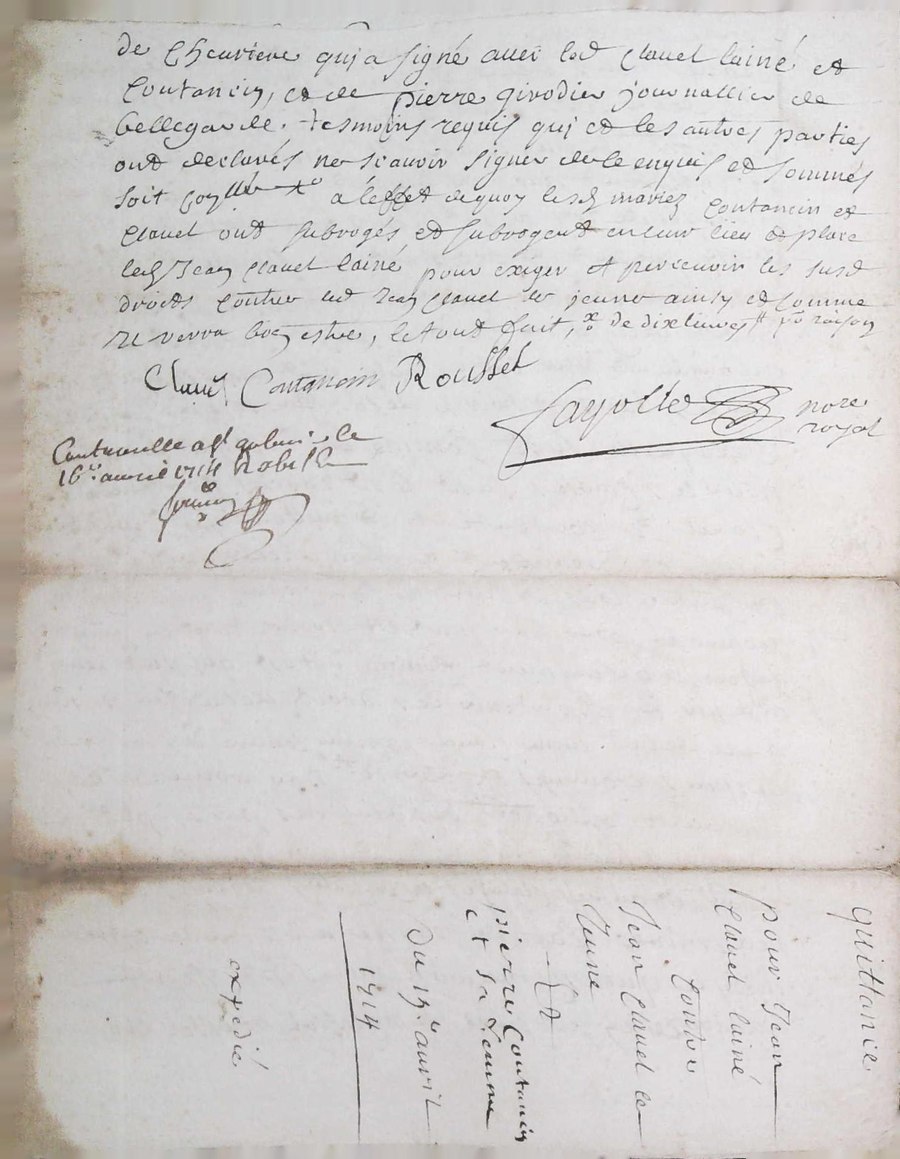 de Cheuriere qui a signé auec led Clauet lainé et
Coutancin, et de pierre girodier journallier de
bellegarde. tesmoins requis qui et les autres parties
ont declarés ne scauoir signer de le enquis et sommés
soit à leffet de quoy lesd mariez Coutancin et
Clauet ont subrogés, et subrogent en leur lieu et place
led Jean Clauet lainé pour exiger et perceuoir les susd
droits contre led Jean Clauet le jeune ainsy et comme
il verra bien estre, le tout fait, de dix liures
Clauet Coutancin Rousset
fayolle nore
royal
Controulle a st galmier le
16e auril 1714
quittance
pour Jean
Clauet lainé
Contre
Jean Clauet le
Jeune
Et
pierre Coutancin
et sa femme
Du 15e auril
1714
expedié